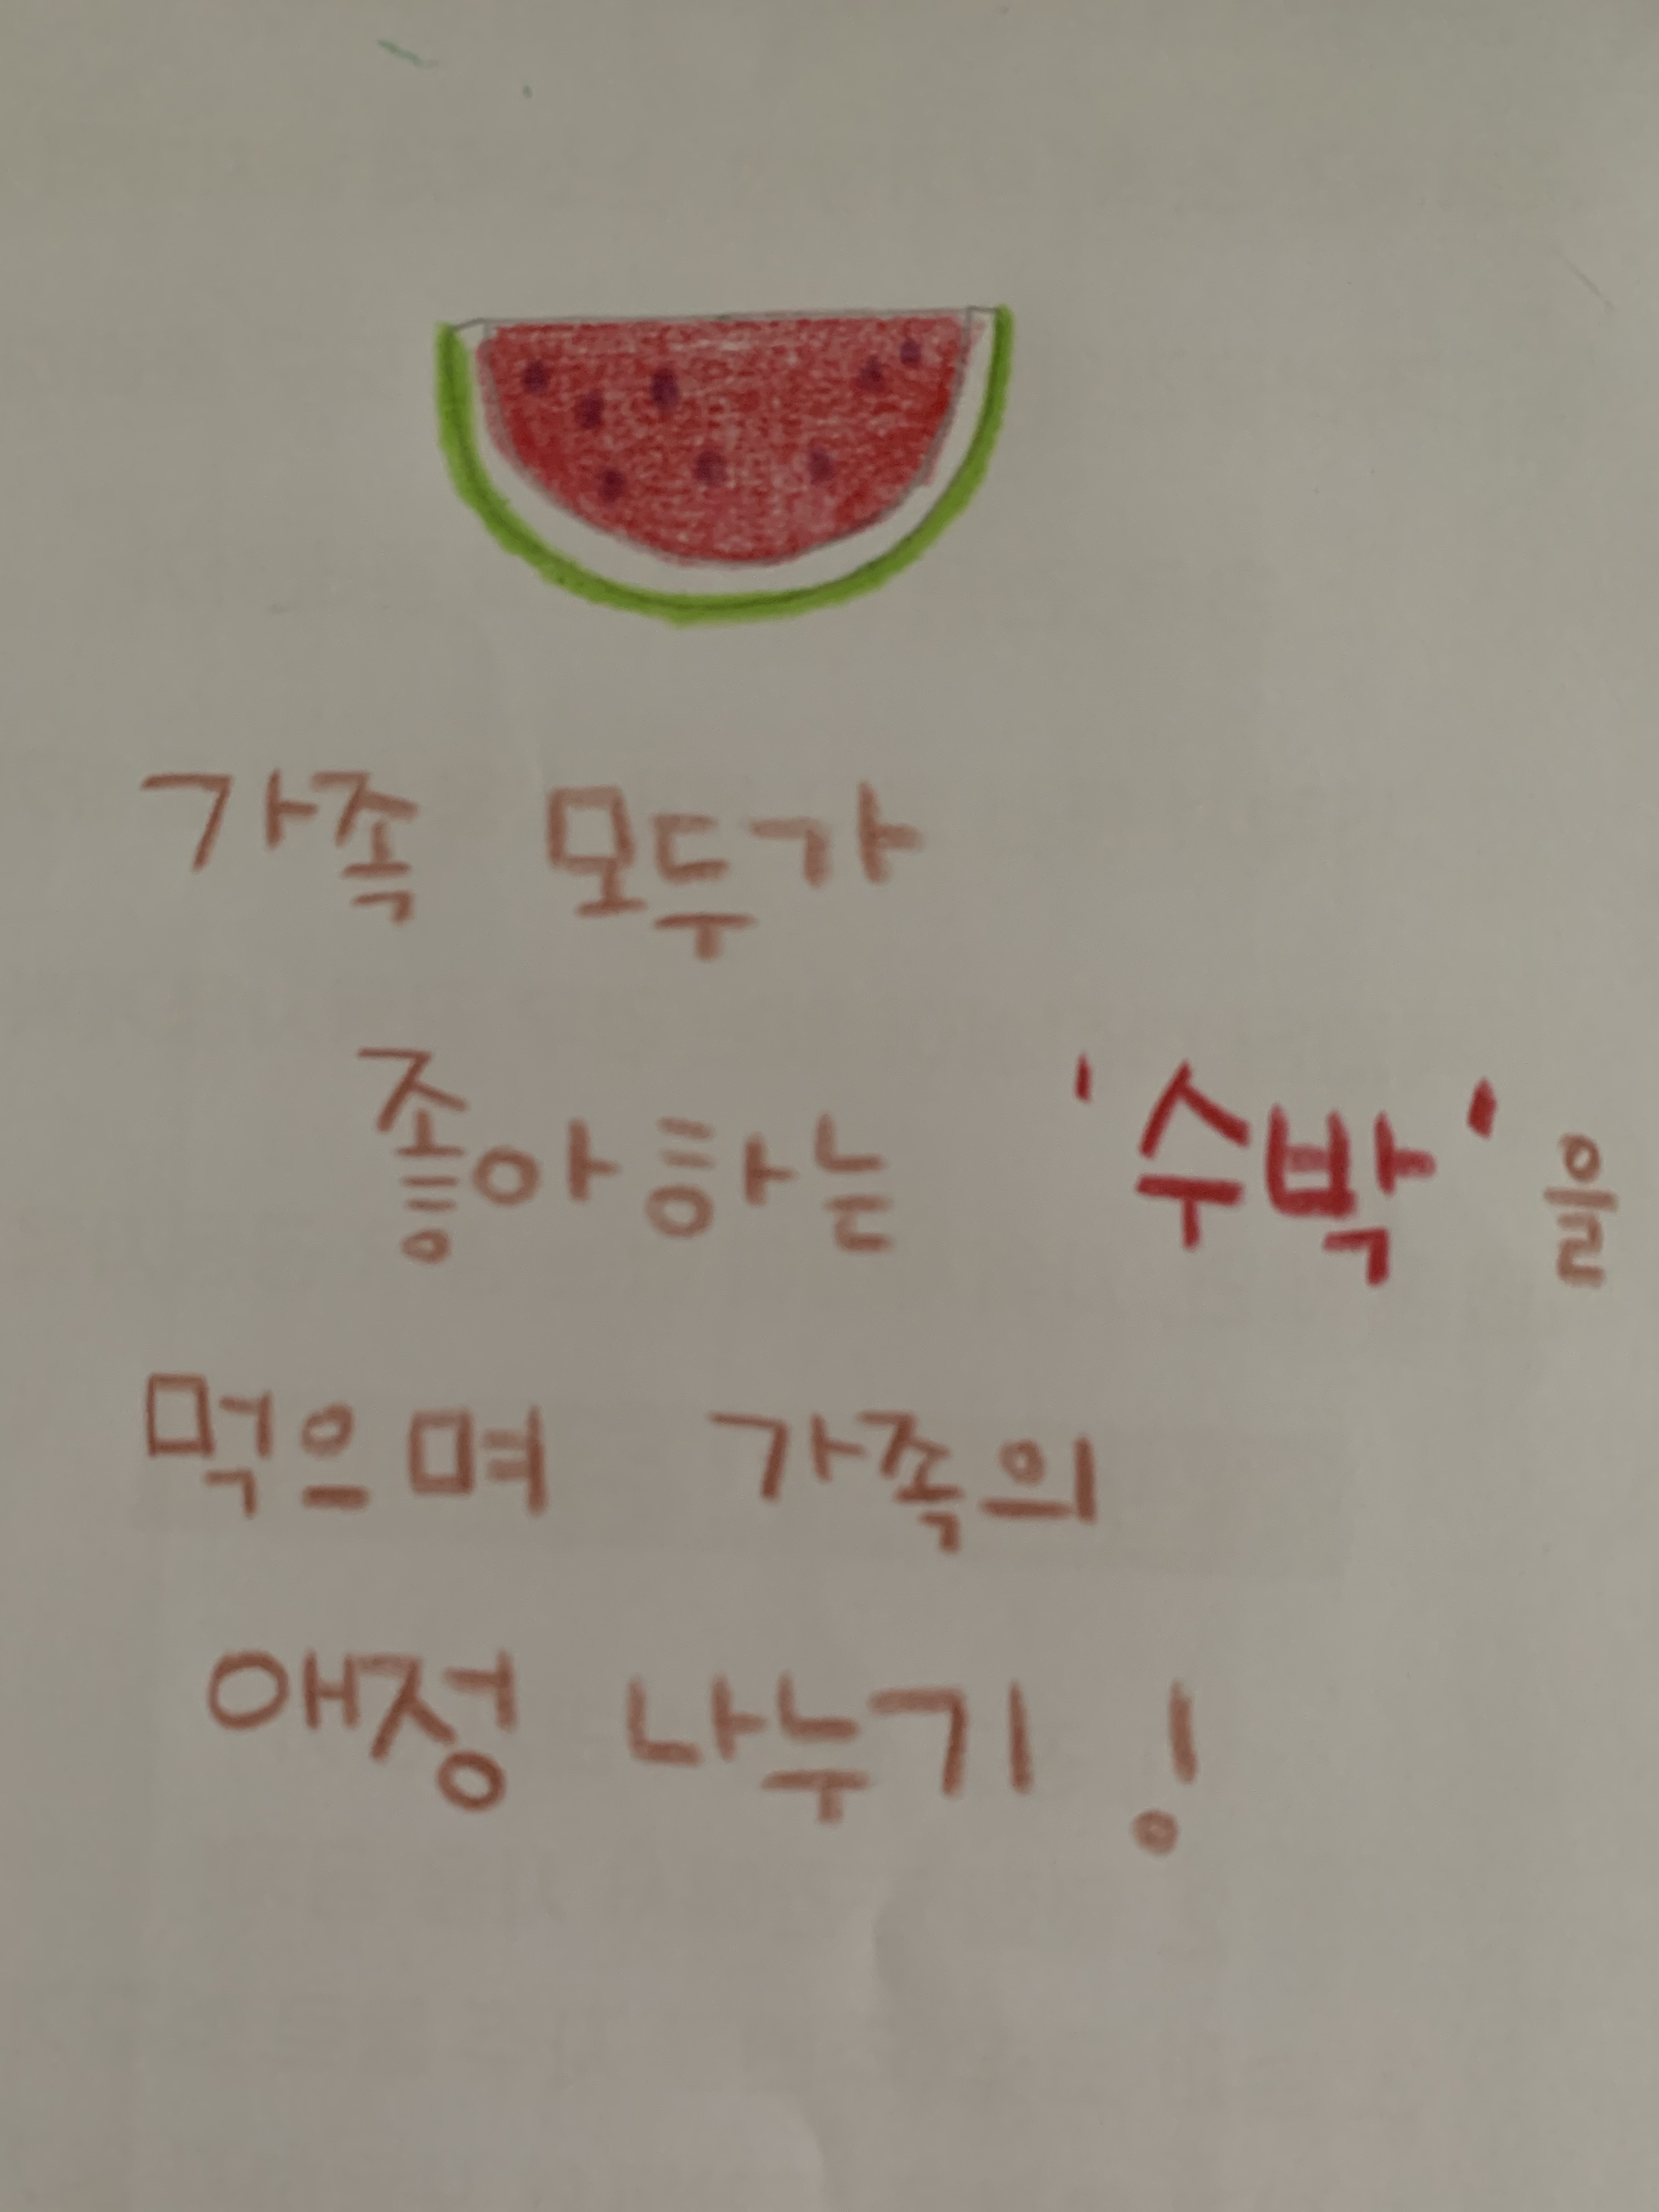 가족 모두가
좋아하는 '수박'을
먹으며 가족의
애정 나누기!